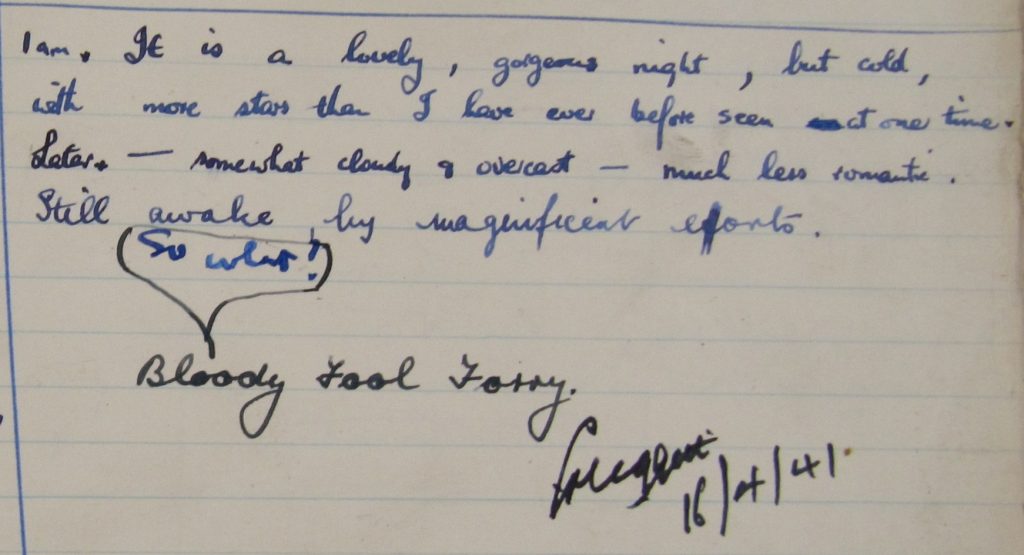 1 am. It is a lovely, gorgeous night, but cold,
with more stars than I have ever before seen at one time.
Later. — somewhat cloudy & overcast — much less romantic.
Still awake, by magnificent efforts.
(So what!)
Bloody Fool Forry.
16/4/41.